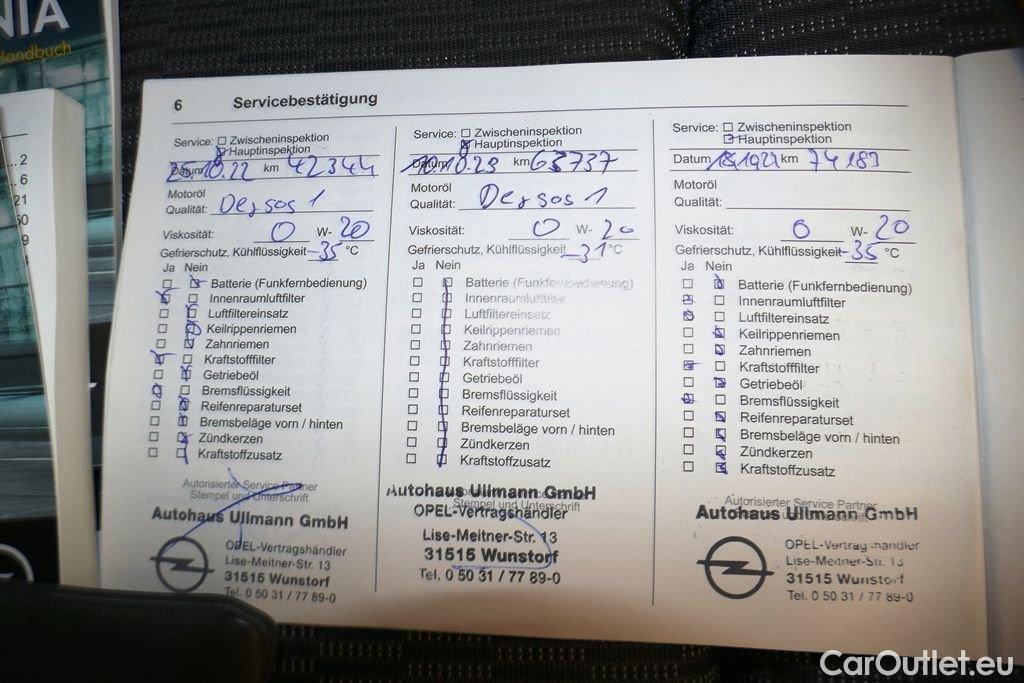 NIA
Handbuch
...2
...6
21
6 Servicebestätigung
Service: Zwischeninspektion
Hauptinspektion
Datum 25.10.22 km 42344
Motoröl
Qualität: Dexos 1
Viskosität: 0 W- 20
Gefrierschutz, Kühlflüssigkeit -35 °C
Ja Nein
Batterie (Funkfernbedienung)
Innenraumluftfilter
Luftfiltereinsatz
Keilrippenriemen
Zahnriemen
Kraftstofffilter
Getriebeöl
Bremsflüssigkeit
Reifenreparaturset
Bremsbeläge vorn / hinten
Zündkerzen
Kraftstoffzusatz
Autorisierter Service Partner
Stempel und Unterschrift
Autohaus Ullmann GmbH
OPEL-Vertragshändler
Lise-Meitner-Str. 13
31515 Wunstorf
Tel. 0 50 31 / 77 89-0
Service: Zwischeninspektion
Hauptinspektion
Datum 10.10.23 km 63737
Motoröl
Qualität: Dexos 1
Viskosität: 0 W- 20
Gefrierschutz, Kühlflüssigkeit -31 °C
Ja Nein
Batterie (Funkfernbedienung)
Innenraumluftfilter
Luftfiltereinsatz
Keilrippenriemen
Zahnriemen
Kraftstofffilter
Getriebeöl
Bremsflüssigkeit
Reifenreparaturset
Bremsbeläge vorn / hinten
Zündkerzen
Kraftstoffzusatz
Stempel und Unterschrift
Autohaus Ullmann GmbH
OPEL-Vertragshändler
Lise-Meitner-Str. 13
31515 Wunstorf
Tel. 0 50 31 / 77 89-0
Service: Zwischeninspektion
Hauptinspektion
Datum km 74183
Motoröl
Qualität:
Viskosität: 0 W- 20
Gefrierschutz, Kühlflüssigkeit -35 °C
Ja Nein
Batterie (Funkfernbedienung)
Innenraumluftfilter
Luftfiltereinsatz
Keilrippenriemen
Zahnriemen
Kraftstofffilter
Getriebeöl
Bremsflüssigkeit
Reifenreparaturset
Bremsbeläge vorn / hinten
Zündkerzen
Kraftstoffzusatz
Autorisierter Service Partner
Autohaus Ullmann GmbH
OPEL-Vertragshändler
Lise-Meitner-Str. 13
31515 Wunstorf
Tel. 0 50 31 / 77 89-0
CarOutlet.eu